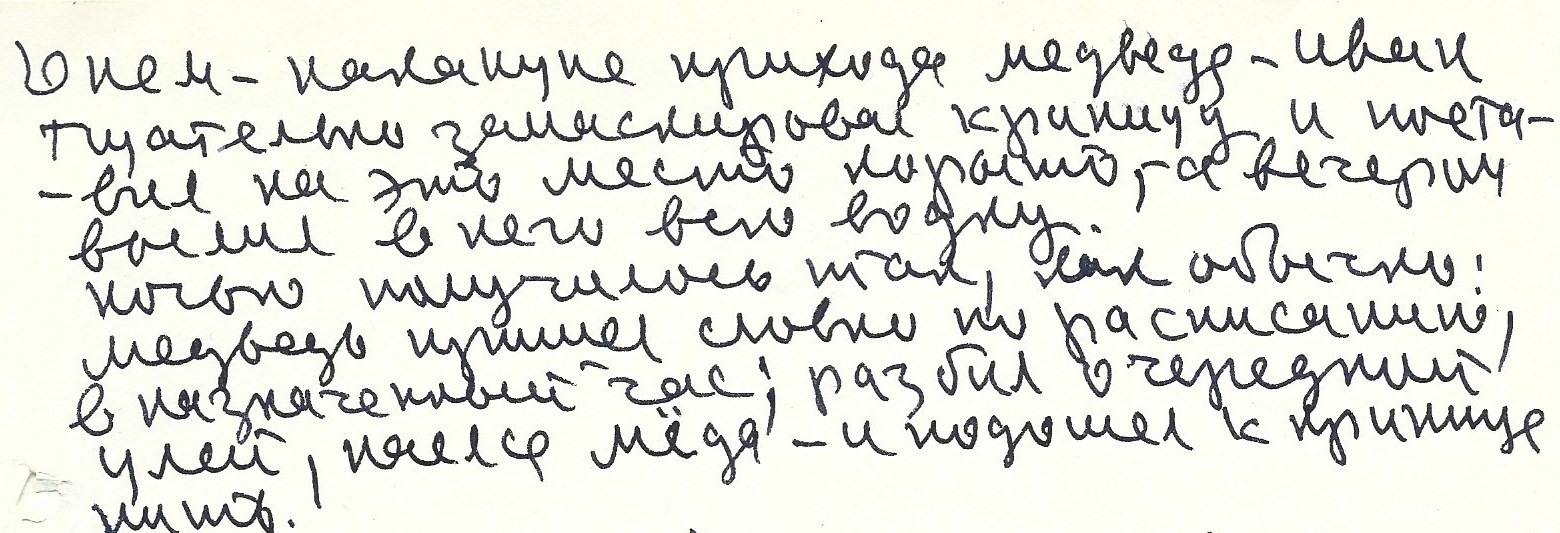 Днем - накануне прихода медведя - Иван
тщательно замаскировал криницу и поста-
-вил на это место корыто, а вечером
вылил в него всю водку.
Ночью получилось так, как обычно:
медведь пришел словно по расписанию,
в назначенный час; разбил очередной
улей, наелся мёда - и подошел к кринице
пить.